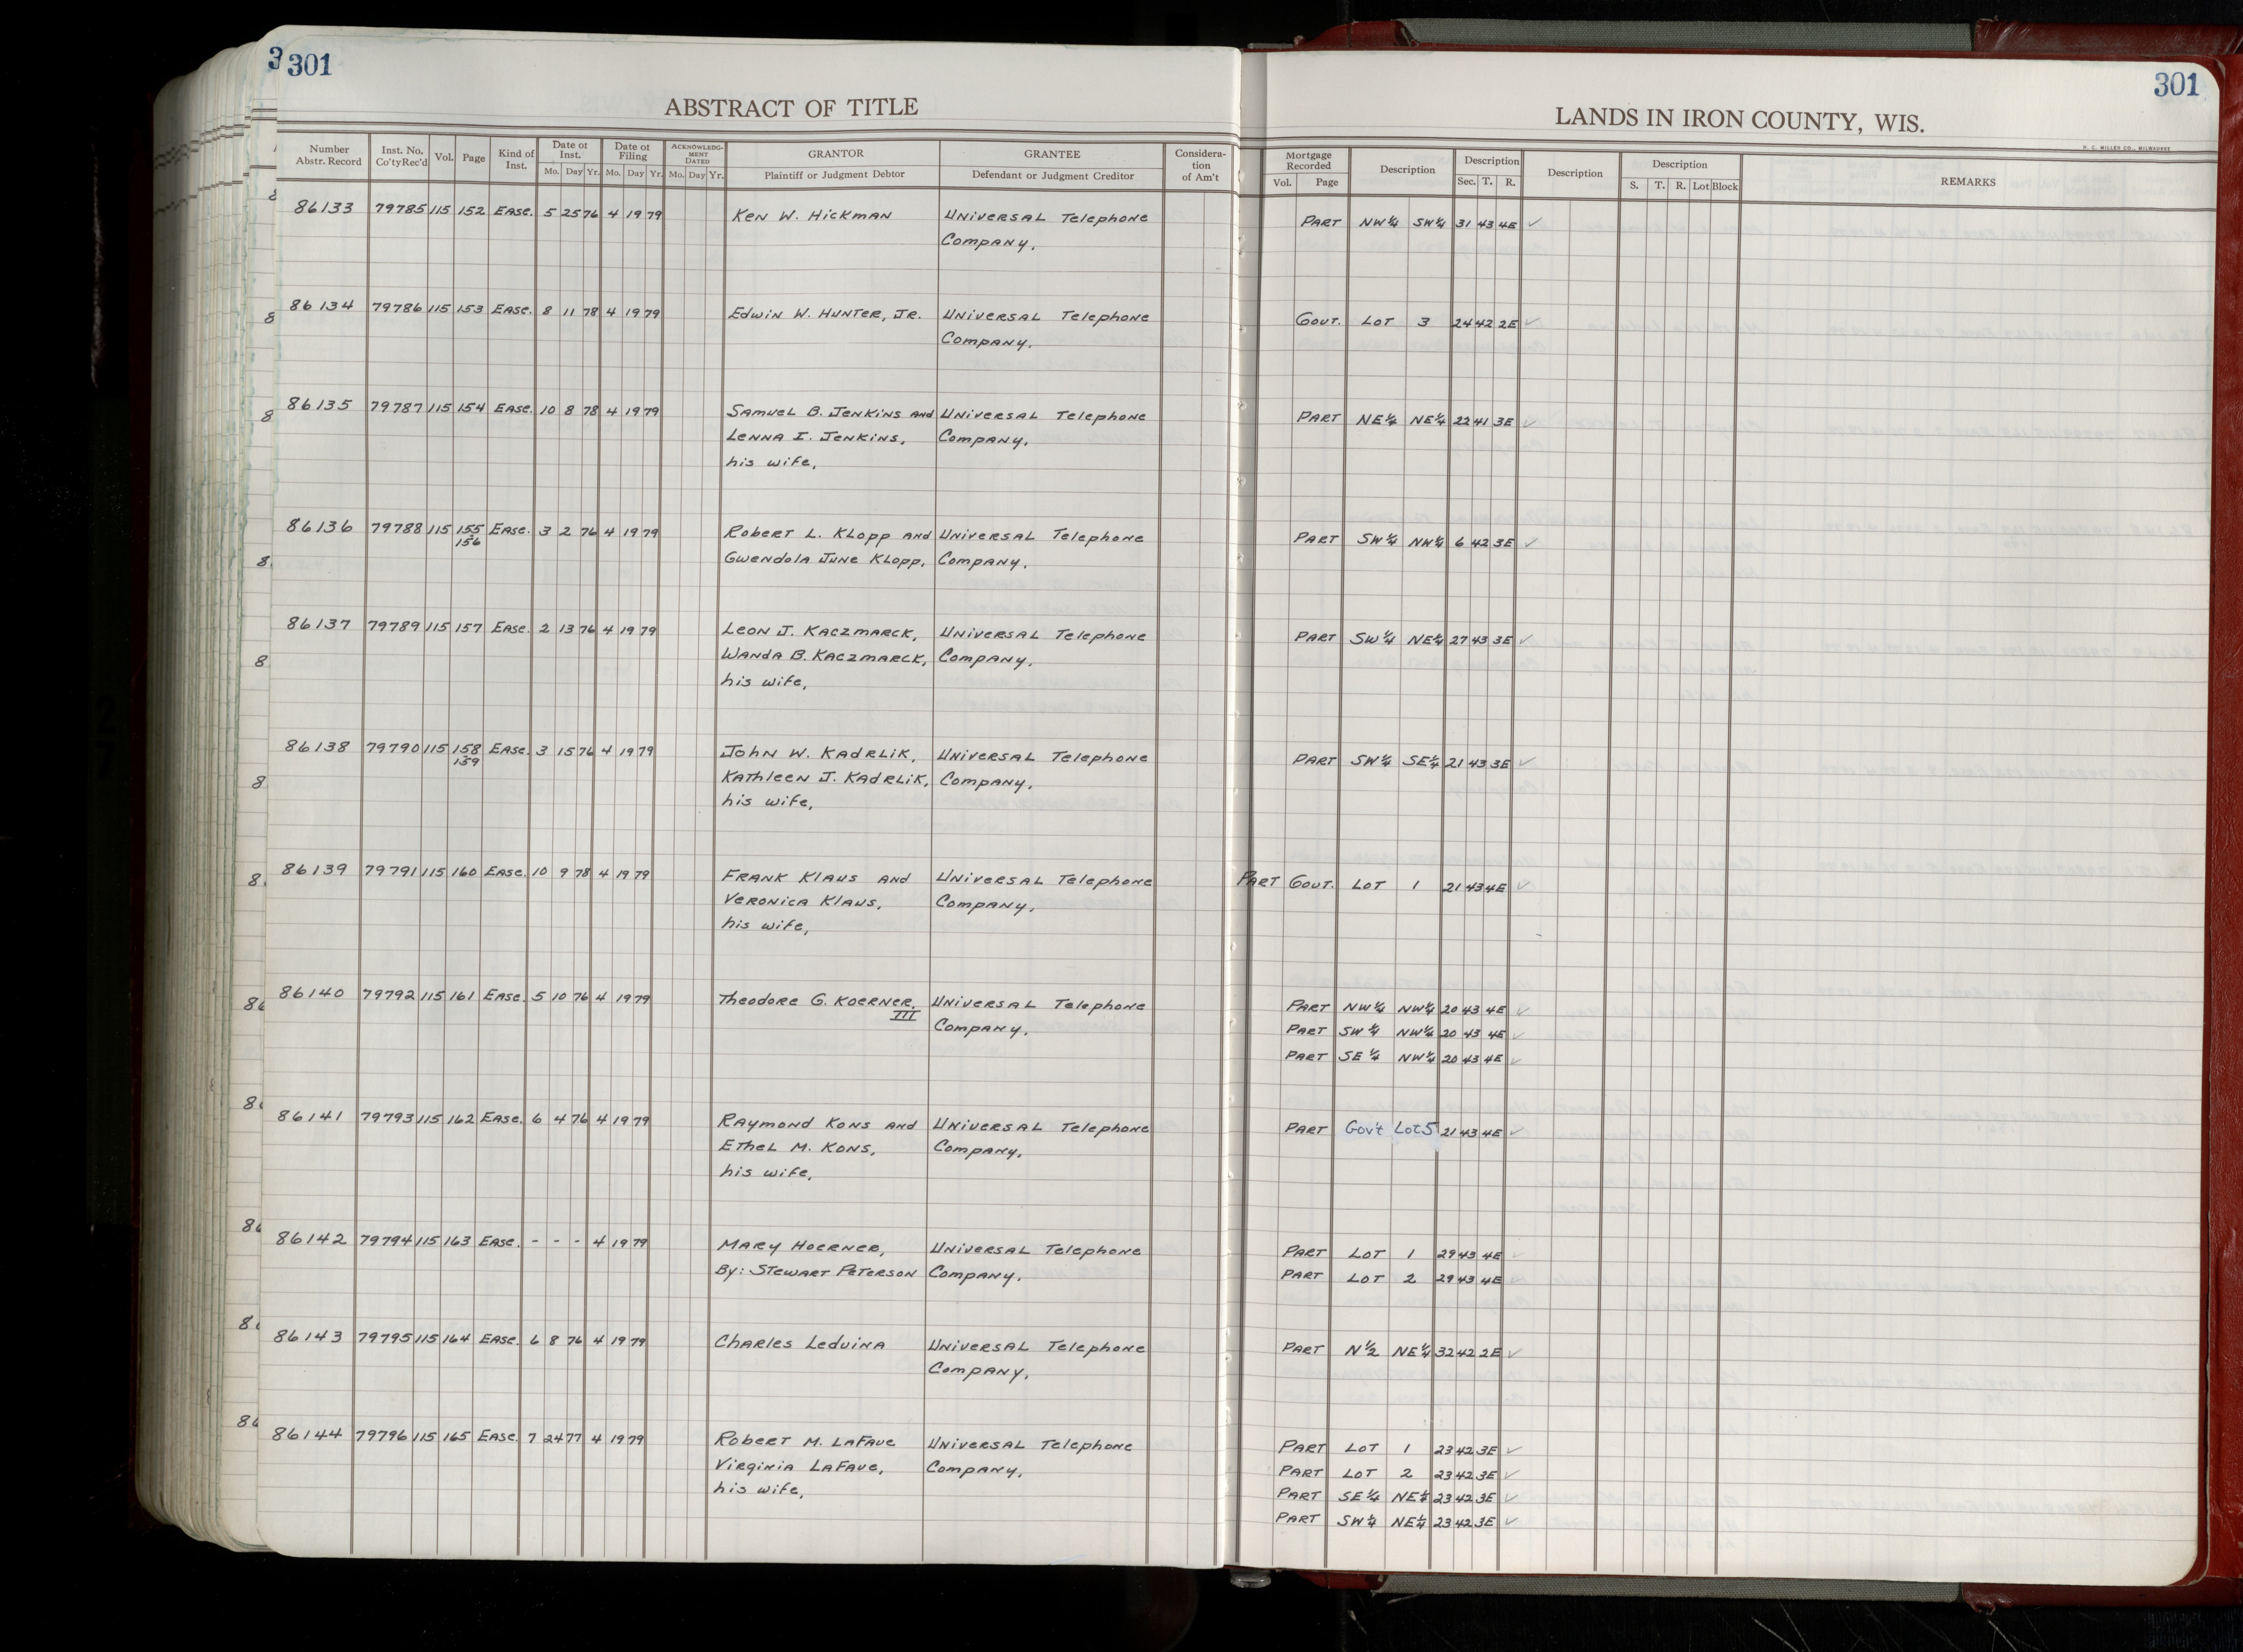 3 301
ABSTRACT OF TITLE
Number Abstr. Record Inst. No. Co'ty Rec'd Vol. Page Kind of Inst. Date of Inst. Mo. Day Yr. Date of Filing Mo. Day Yr. ACKNOWLEDGMENT DATED Mo. Day Yr. GRANTOR Plaintiff or Judgment Debtor GRANTEE Defendant or Judgment Creditor Consideration of Am't
86133 79785 115 152 Ease. 5 25 76 4 19 79 Ken W. Hickman Universal Telephone
Company.
86134 79786 115 153 Ease. 8 11 78 4 19 79 Edwin W. Hunter, Jr. Universal Telephone
Company.
86135 79787 115 154 Ease. 10 8 78 4 19 79 Samuel B. Jenkins and Universal Telephone
Lenna I. Jenkins, Company.
his wife,
86136 79788 115 155 Ease. 3 2 76 4 19 79 Robert L. Klopp and Universal Telephone
156 Gwendola June Klopp, Company.
86137 79789 115 157 Ease. 2 13 76 4 19 79 Leon J. Kaczmarck, Universal Telephone
Wanda B. Kaczmarck, Company.
his wife,
86138 79790 115 158 Ease. 3 15 76 4 19 79 John W. Kadrlik, Universal Telephone
159 Kathleen J. Kadrlik, Company.
his wife,
86139 79791 115 160 Ease. 10 9 78 4 19 79 Frank Klaus and Universal Telephone
Veronica Klaus, Company.
his wife,
86140 79792 115 161 Ease. 5 10 76 4 19 79 Theodore G. Koerner, Universal Telephone
III Company.
86141 79793 115 162 Ease. 6 4 76 4 19 79 Raymond Kons and Universal Telephone
Ethel M. Kons, Company.
his wife,
86142 79794 115 163 Ease. - - - 4 19 79 Mary Universal Telephone
By: Stewart Peterson Company.
86143 79795 115 164 Ease. 6 8 76 4 19 79 Charles Leduina Universal Telephone
Company.
86144 79796 115 165 Ease. 7 24 77 4 19 79 Robert M. LaFave Universal Telephone
Virginia LaFave, Company.
his wife,
301
LANDS IN IRON COUNTY, WIS.
H. C. MILLER CO., MILWAUKEE
Mortgage Recorded Vol. Page Description Description Sec. T. R. Description Description S. T. R. Lot Block REMARKS
Part NW¼ SW¼ 31 43 4E ✓
Gov't. Lot 3 24 42 2E ✓
Part NE¼ NE¼ 22 41 3E ✓
Part SW¼ NW¼ 6 42 3E ✓
Part SW¼ NE¼ 27 43 3E ✓
Part SW¼ SE¼ 21 43 3E ✓
Part Gov't. Lot 1 21 43 4E ✓
Part NW¼ NW¼ 20 43 4E ✓
Part SW¼ NW¼ 20 43 4E ✓
Part SE¼ NW¼ 20 43 4E ✓
Part Gov't Lot 5 21 43 4E ✓
Part Lot 1 29 43 4E ✓
Part Lot 2 29 43 4E ✓
Part N½ NE¼ 32 42 2E ✓
Part Lot 1 23 42 3E ✓
Part Lot 2 23 42 3E ✓
Part SE¼ NE¼ 23 42 3E ✓
Part SW¼ NE¼ 23 42 3E ✓